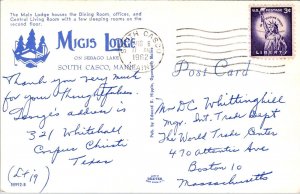 The Main Lodge houses the Dining Room, offices, and
Central Living Room with a few sleeping rooms on the
second floor.
MIGIS LODGE
ON SEBAGO LAKE
SOUTH CASCO, MAINE
SOUTH CASCO
1962
3¢
LIBERTY
Post Card
Thank you very much
for your thoughtfulness.
address is
321 Whitehall
Corpus Christi
Texas
(Lt 19)
Mrs D C Whittinghill
Mgr. Int. Trade Dept
The World Trade Center
470 Atlantic Ave
Boston 10
Massachusetts
Pub. by Edward H.